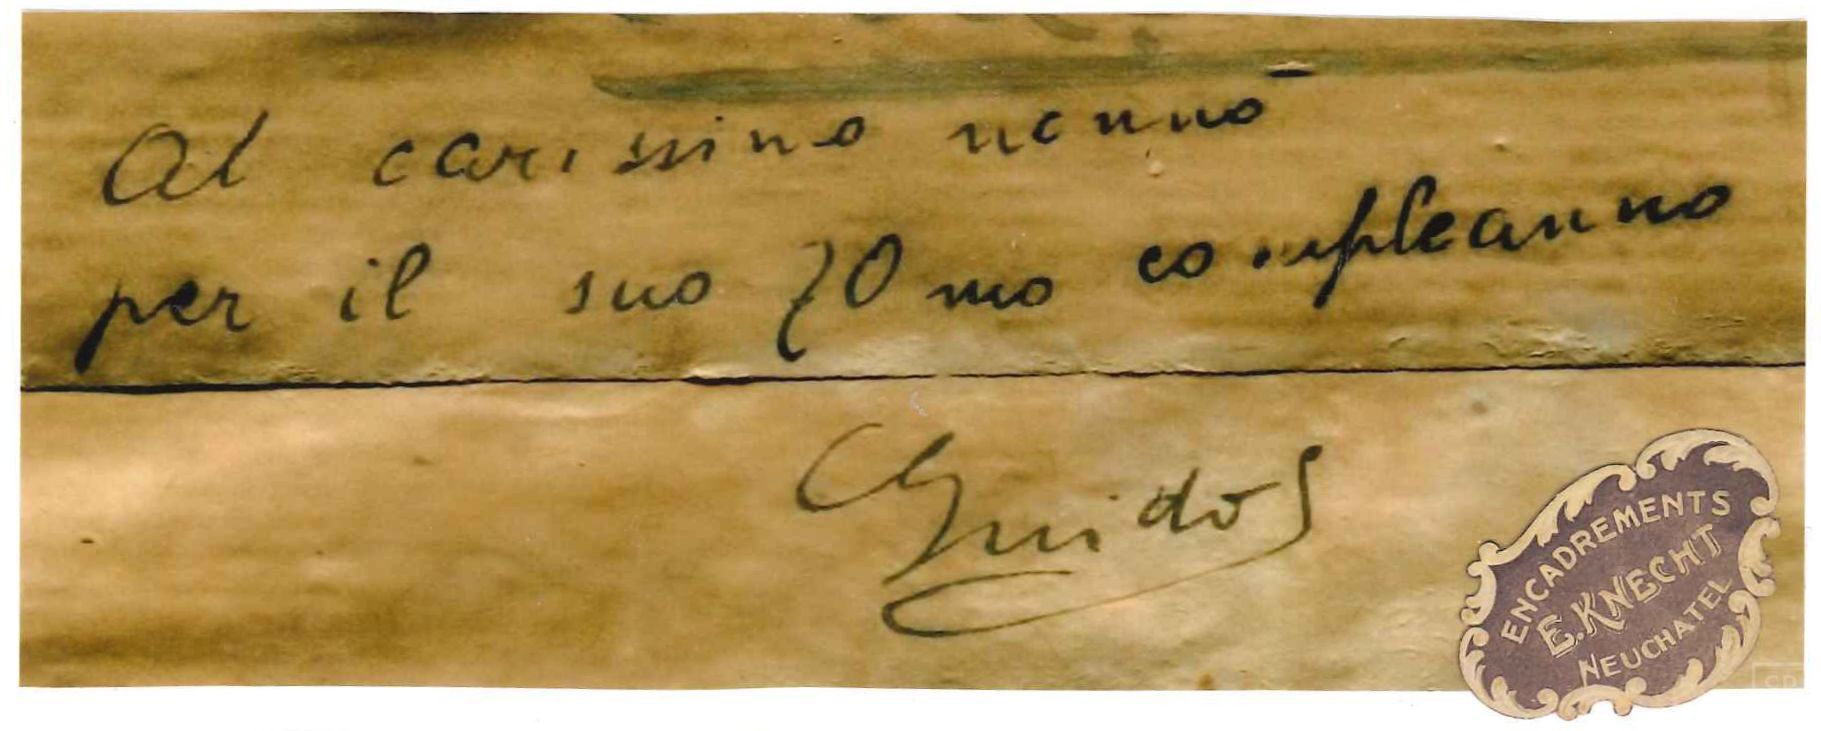 Al carissimo nonno
per il suo 70mo compleanno
Guido
ENCADREMENTS
E. KNECHT
NEUCHATEL
CD